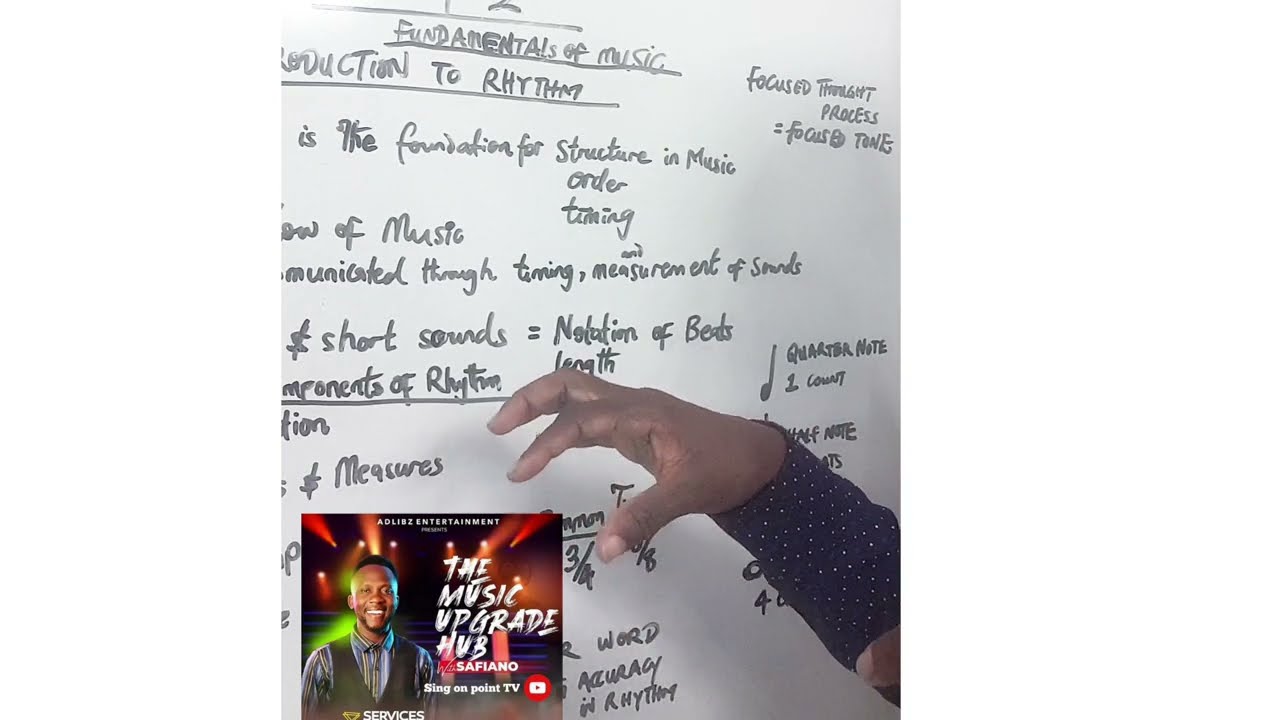 2
FUNDAMENTALS OF MUSIC
RODUCTION TO RHYTHM
FOCUSED THOUGHT
PROCESS
= FOCUSED TONES
is The foundation for structure in Music
order
timing
ow of Music
and
municated through timing, measurement of sounds
& short sounds = Notation of Beats
length
QUARTER NOTE
1 COUNT
mponents of Rhythm
tion
HALF NOTE
ATS
& Measures
mmon T
3/4 /8
4
WORD
ACCURACY
IN RHYTHM
ADLIBZ ENTERTAINMENT
PRESENTS
THE
MUSIC
UPGRADE
HUB
With SAFIANO
Sing on point TV
SERVICES